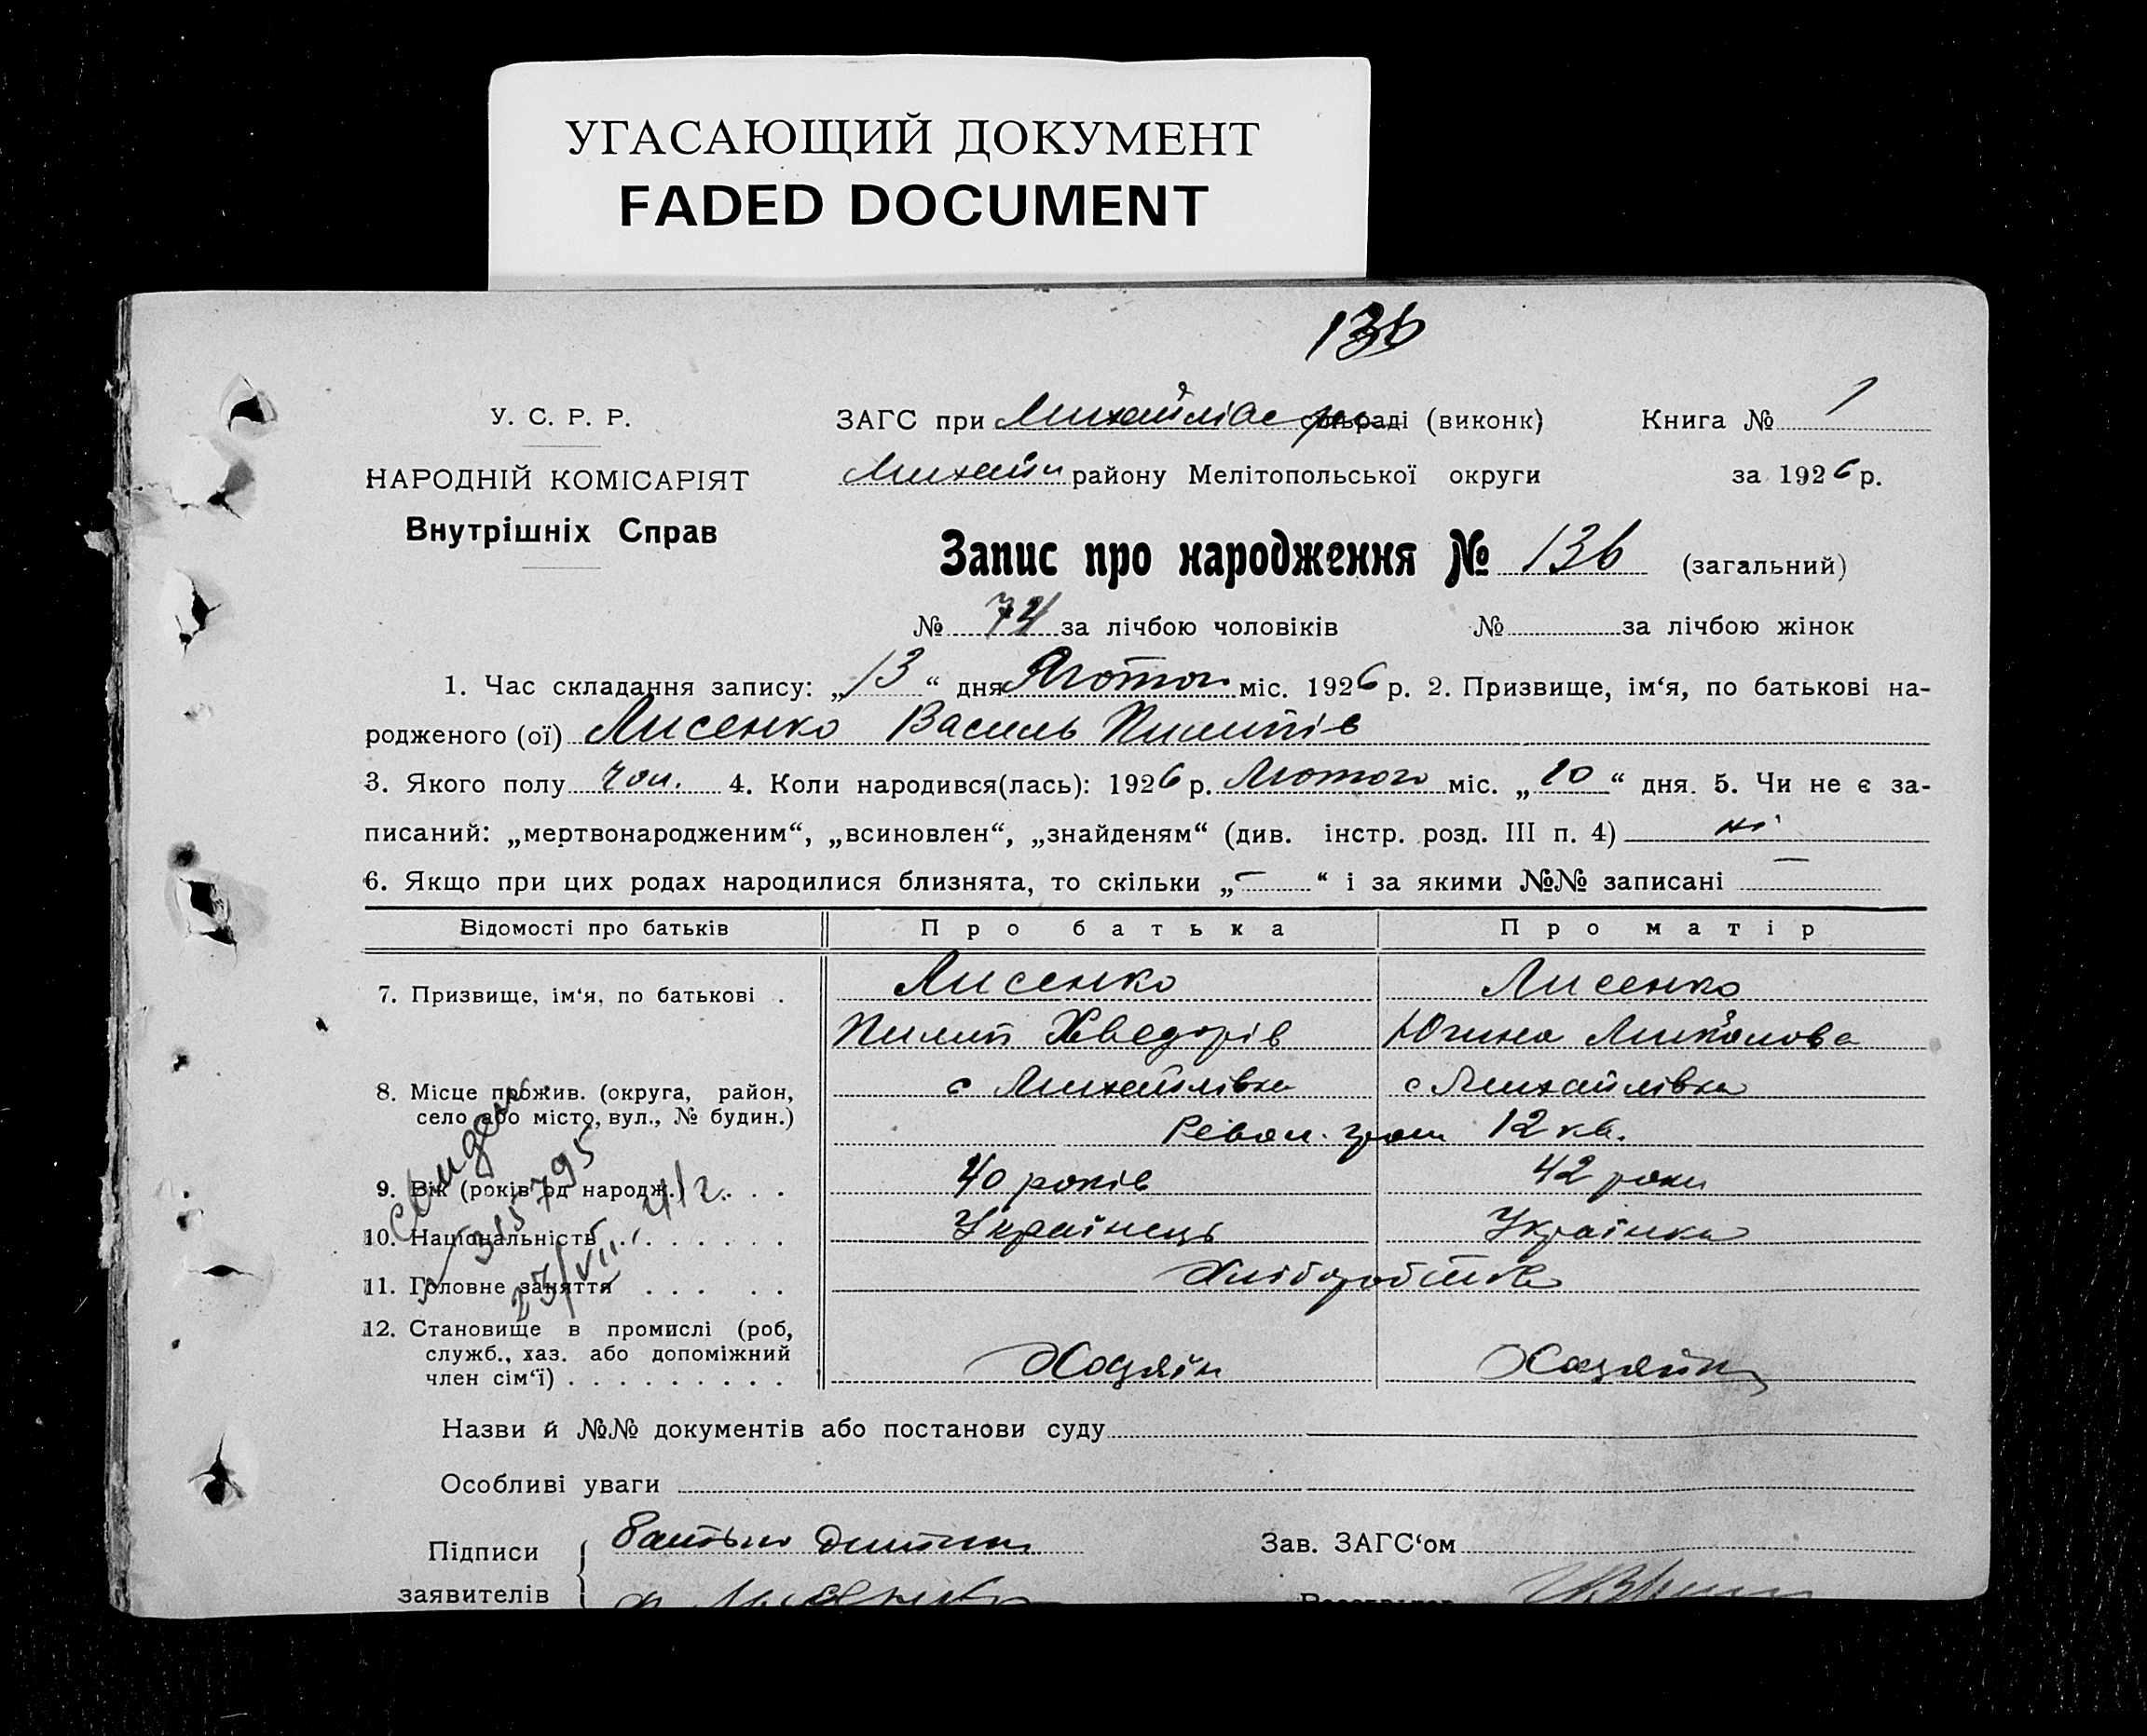 УГАСАЮЩИЙ ДОКУМЕНТ
FADED DOCUMENT
136
У. С. Р. Р.
ЗАГС при Михайлів рай сільраді (виконк) Книга № 1
НАРОДНІЙ КОМІСАРІЯТ
Михайл району Мелітопольської округи за 1926 р.
Внутрішніх Справ
Запис про народження № 136 (загальний)
№ 74 за лічбою чоловіків № за лічбою жінок
1. Час складання запису: „13“ дня Лютого міс. 1926 р. 2. Призвище, ім‘я, по батькові на-
родженого (ої) Лисенко Василь Пилипів
3. Якого полу чол. 4. Коли народився(лась): 1926 р. Лютого міс. „10“ дня. 5. Чи не є за-
писаний: „мертвонародженим“, „всиновлен“, „знайденям“ (див. інстр. розд. III п. 4) ні
6. Якщо при цих родах народилися близнята, то скільки „—“ і за якими №№ записані —
Відомості про батьків Про батька Про матір
7. Призвище, ім‘я, по батькові . Лисенко Лисенко
Пилип Хведорів Югина Миколова
8. Місце прожив. (округа, район, с Михайлівка с Михайлівка
село або місто, вул., № будин.) Револ. 12 кв.
9. Вік (років од народж.) . . . 40 років 42 роки
10. Національність . . . . . . . Українець Українка
11. Головне заняття . . . . . Хліборобство
12. Становище в промислі (роб,
служб., хаз. або допоміжний Хозяїн Хазяйка
член сім‘ї) . . . . . . . . .
315795
Назви й №№ документів або постанови суду
Особливі уваги
Підписи батько дитини Зав. ЗАГС‘ом
заявителів Лисенко